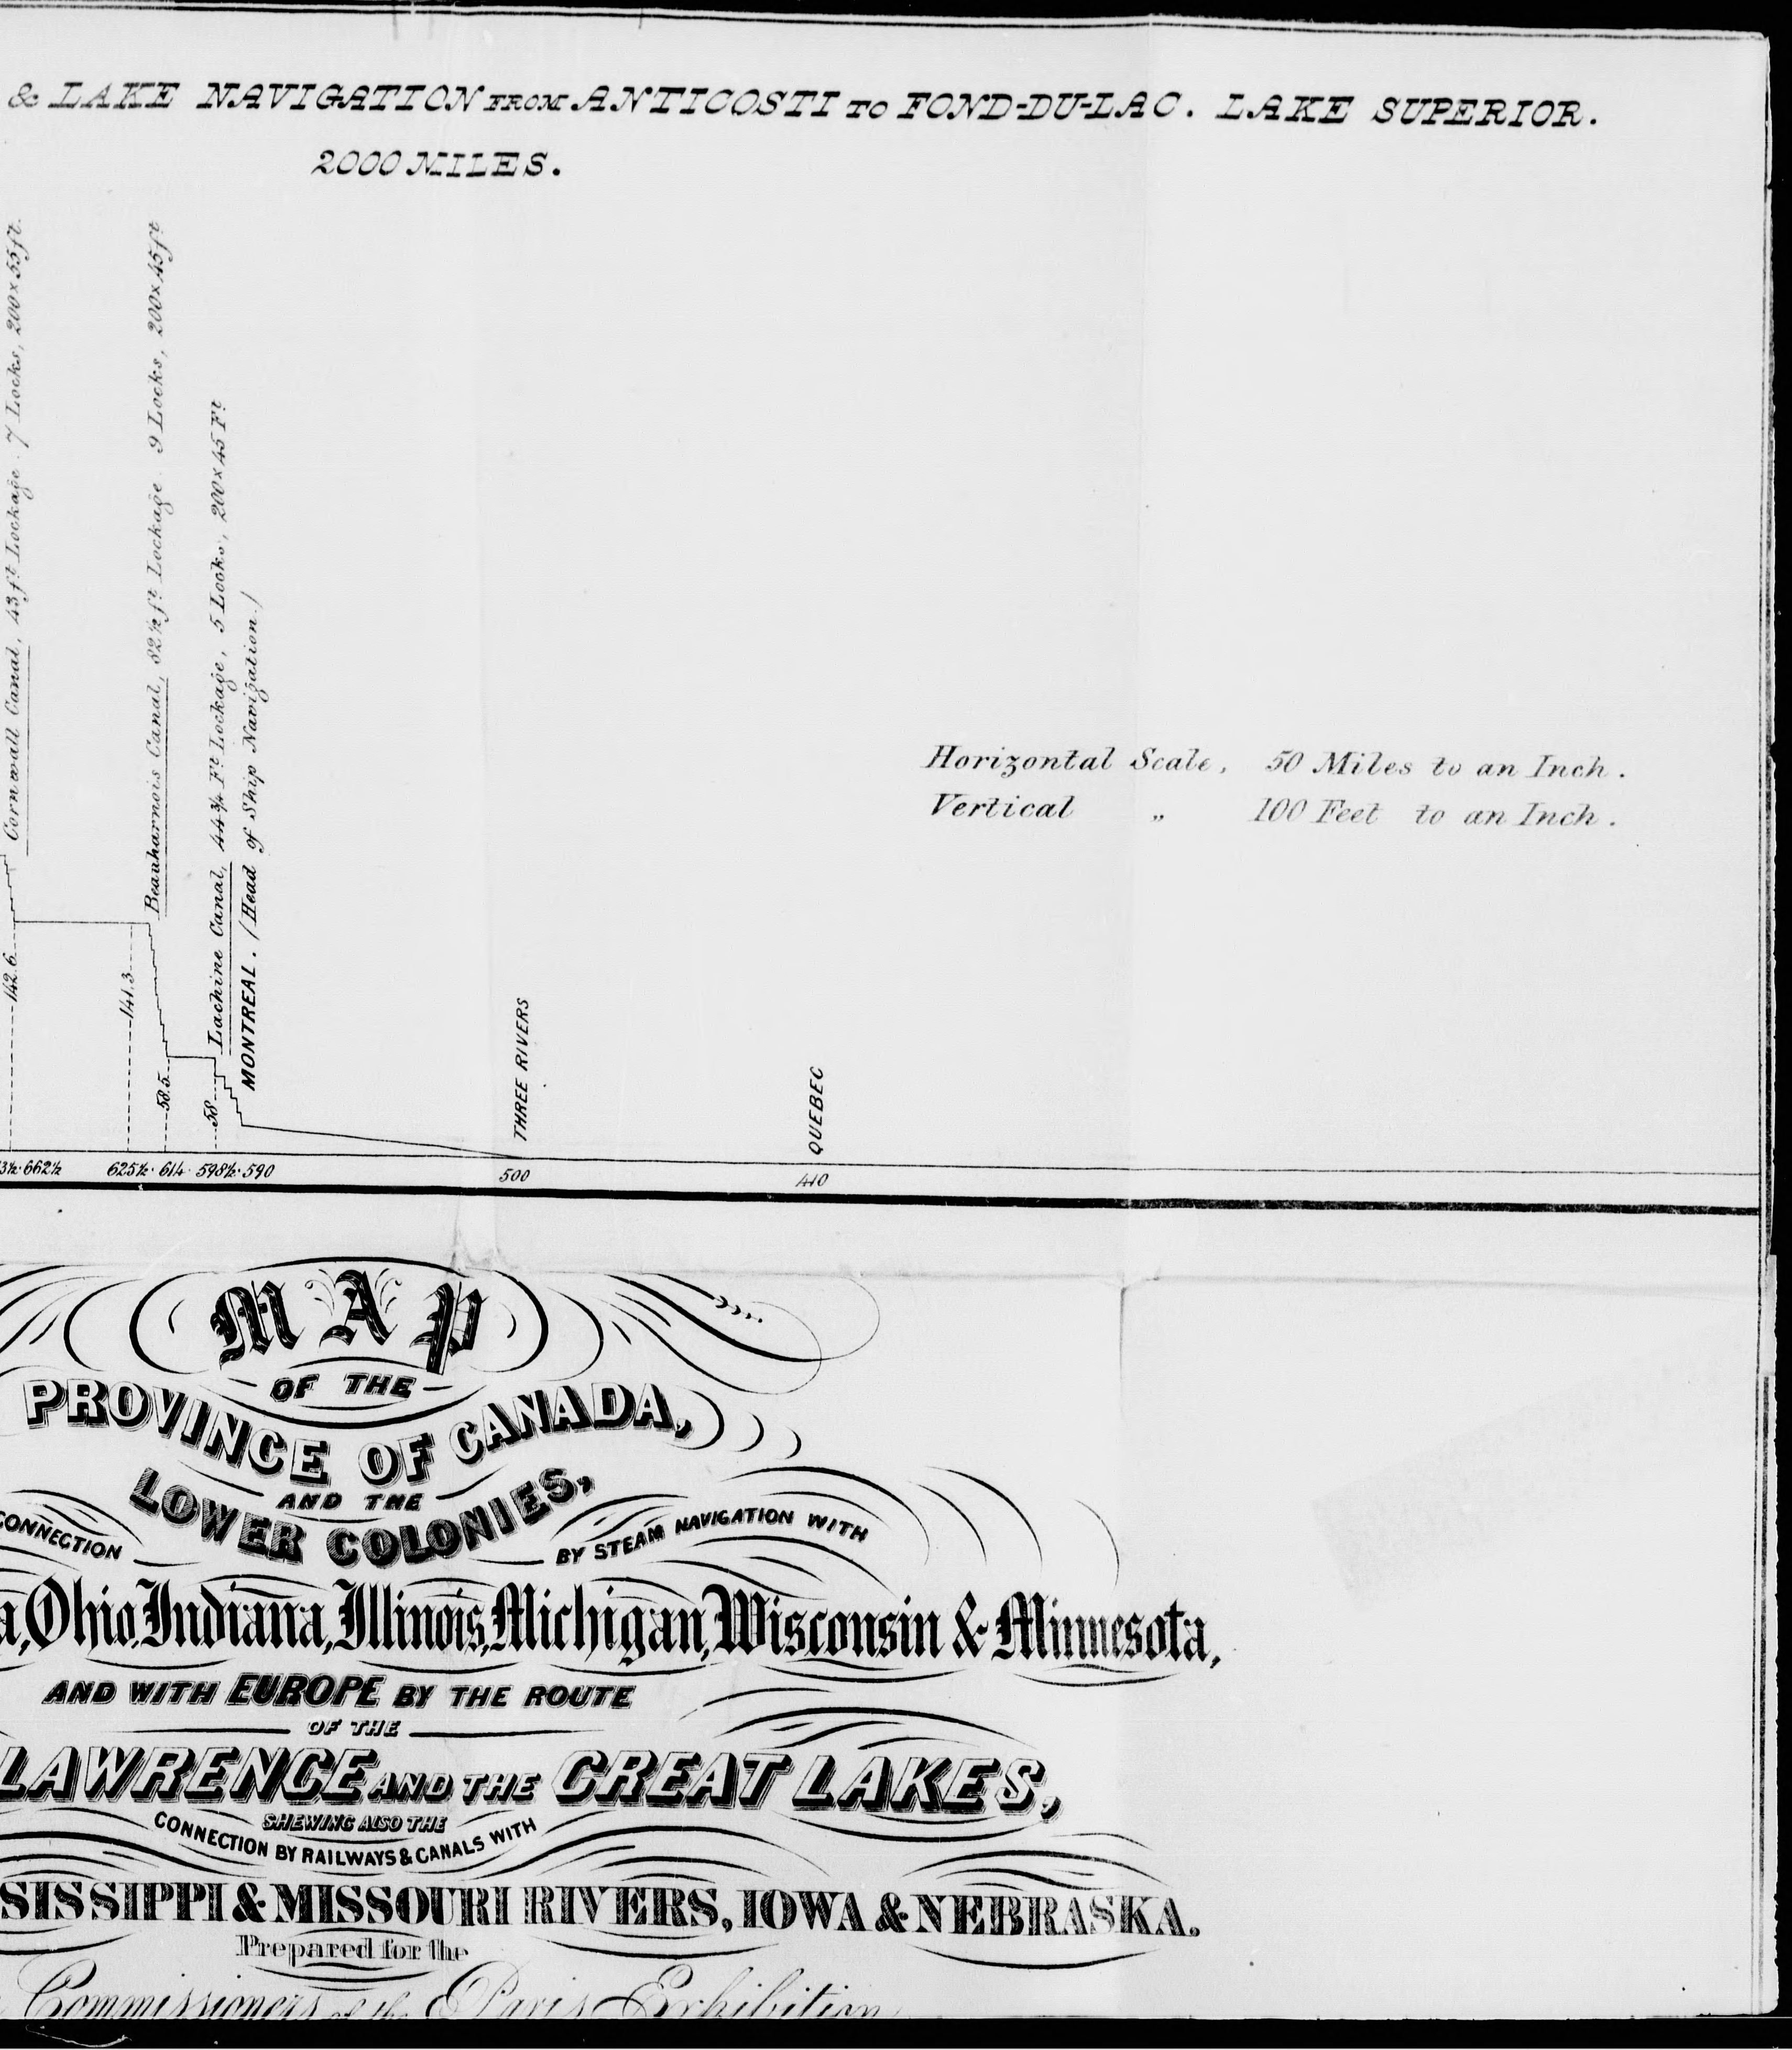 & LAKE NAVIGATION FROM ANTICOSTI TO FOND-DU-LAC. LAKE SUPERIOR.
2000 MILES.
Cornwall Canal, 43 ft Lockage 7 Locks, 200 x 55 ft.
Beauharnois Canal, 82½ ft Lockage 9 Locks, 200 x 45 ft
Lachine Canal, 44¾ Ft Lockage, 5 Locks, 200 x 45 Ft
MONTREAL. (Head of Ship Navigation.)
Horizontal Scale, 50 Miles to an Inch.
Vertical „ 100 Feet to an Inch.
142.6
141.3
58.5
58
THREE RIVERS
QUEBEC
3½ 662½ 625½ 614 598½ 590 500 410
MAP
OF THE
PROVINCE OF CANADA,
AND THE
LOWER COLONIES,
CONNECTION BY STEAM NAVIGATION WITH
a, Ohio, Indiana, Illinois, Michigan, Wisconsin & Minnesota,
AND WITH EUROPE BY THE ROUTE
OF THE
LAWRENCE AND THE GREAT LAKES,
SHEWING ALSO THE
CONNECTION BY RAILWAYS & CANALS WITH
SISSIPPI & MISSOURI RIVERS, IOWA & NEBRASKA.
Prepared for the
Commissioners of the Paris Exhibition